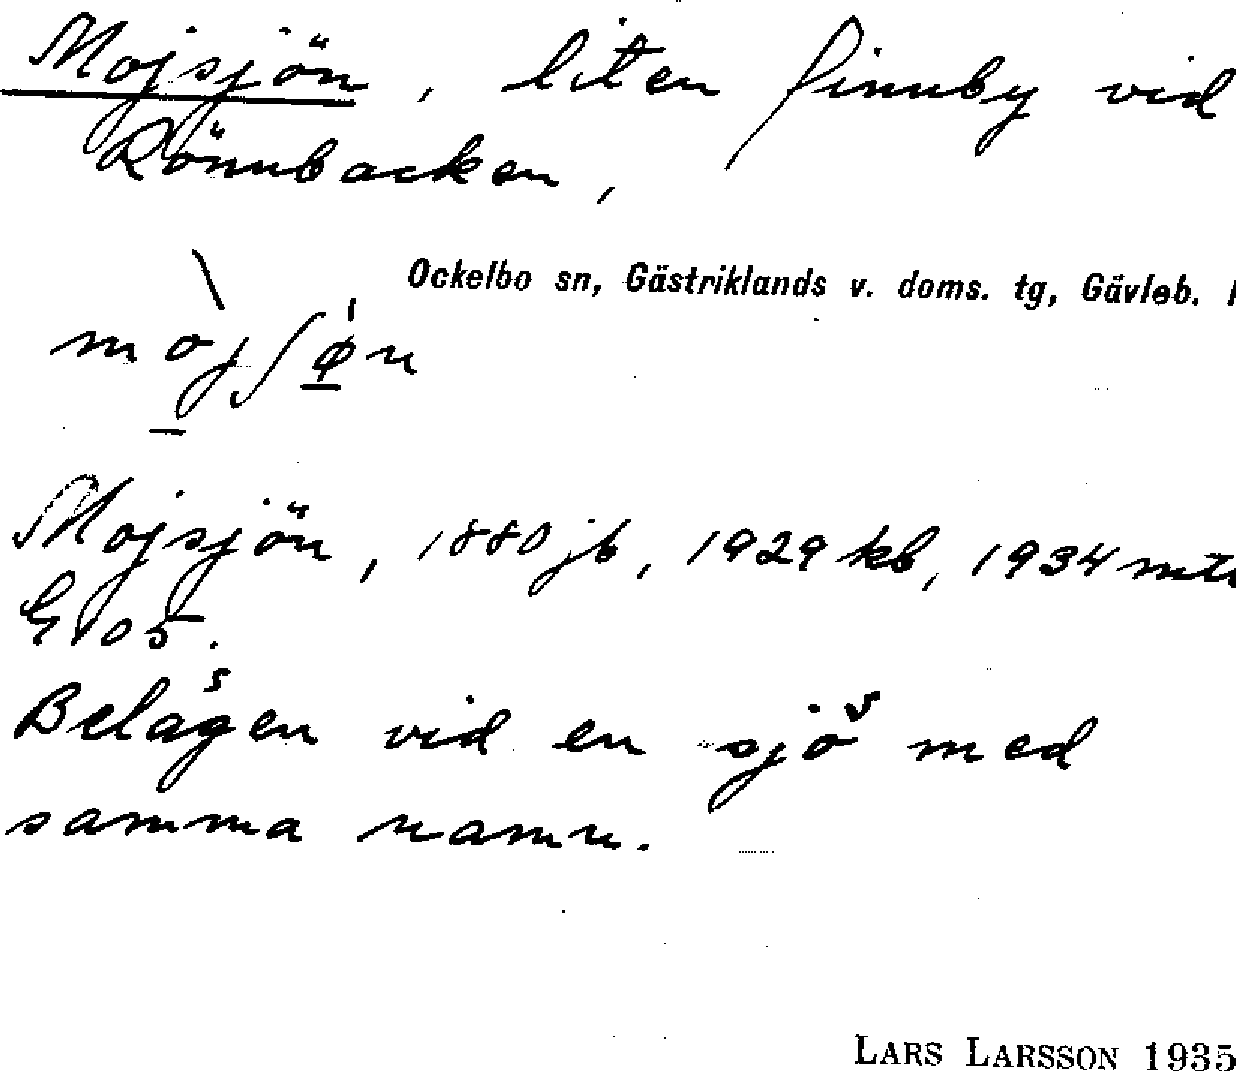 Mojsjön, liten finnby vid
Rönnbacken,
Ockelbo sn, Gästriklands v. doms. tg, Gävleb. l
mòjʃøn
Mojsjön, 1880 jb, 1929 kb, 1934 mtl
G 105.
Belägen vid en sjö med
samma namn.
LARS LARSSON 1935